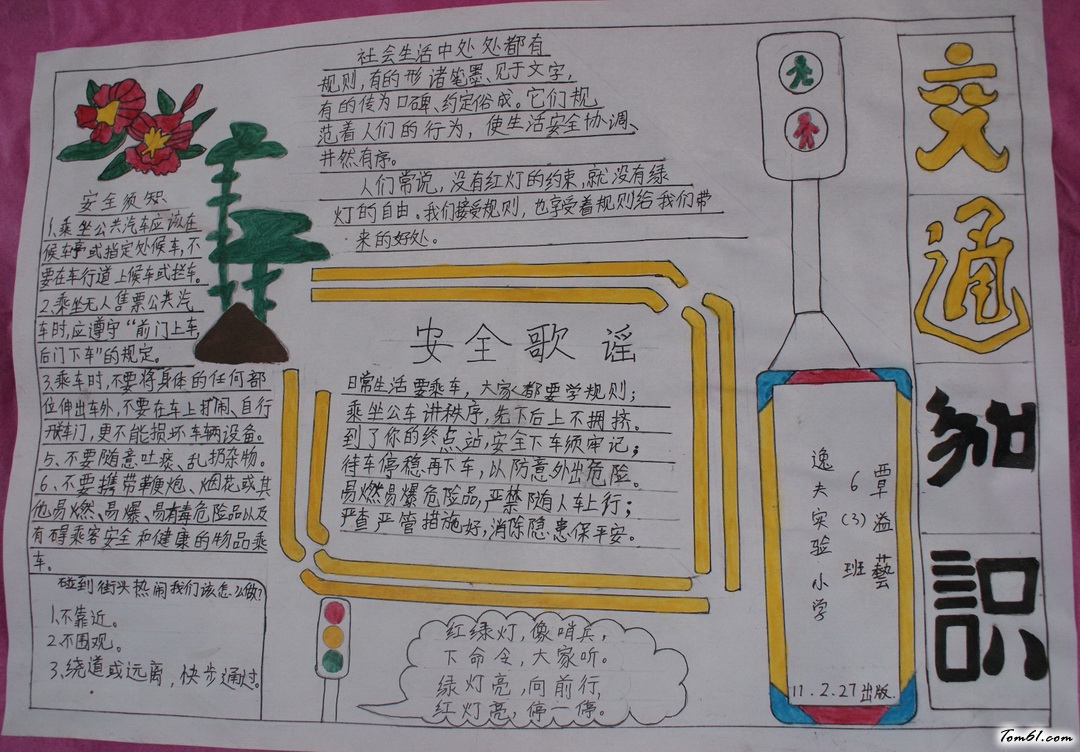 交
通
知
识
社会生活中处处都有
规则,有的形诸笔墨、见于文字,
有的传为口碑、约定俗成。它们规
范着人们的行为,使生活安全协调、
井然有序。
人们常说,没有红灯的约束,就没有绿
灯的自由。我们接受规则,也享受着规则给我们带
来的好处。
安全须知
1.乘坐公共汽车应该在
候车亭或指定处候车,不
要在车行道上候车或拦车。
2.乘坐无人售票公共汽
车时,应遵守“前门上车,
后门下车”的规定。
3.乘车时,不要将身体的任何部
位伸出车外,不要在车上打闹、自行
开车门,更不能损坏车辆设备。
5、不要随意吐痰、乱扔杂物。
6、不要携带鞭炮、烟花或其
他易燃、易爆、易有毒危险品以及
有碍乘客安全和健康的物品乘
车。
碰到街头热闹我们该怎么做?
1.不靠近。
2.不围观。
3.绕道或远离,快步通过。
安全歌谣
日常生活要乘车,大家都要学规则;
乘坐公车讲秩序,先下后上不拥挤。
到了你的终点站,安全下车须牢记;
待车停稳再下车,以防意外出危险。
易燃易爆危险品,严禁随人车上行;
严查严管措施好,消除隐患保平安。
红绿灯,像哨兵,
下命令,大家听。
绿灯亮,向前行,
红灯亮,停一停。
逸夫实验小学
6(3)班
覃溢藝
11.2.27出版.
Tom61.com